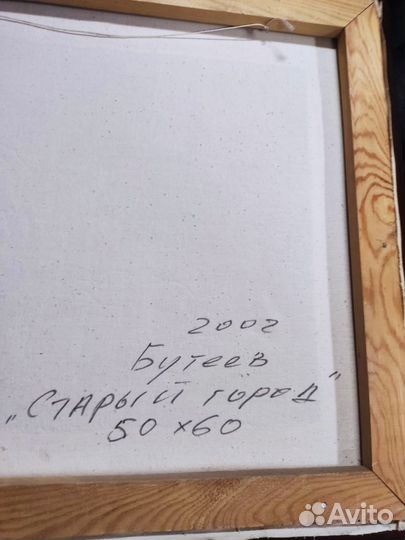 2002
Бутеев
„Старый город"
50 х 60
Avito